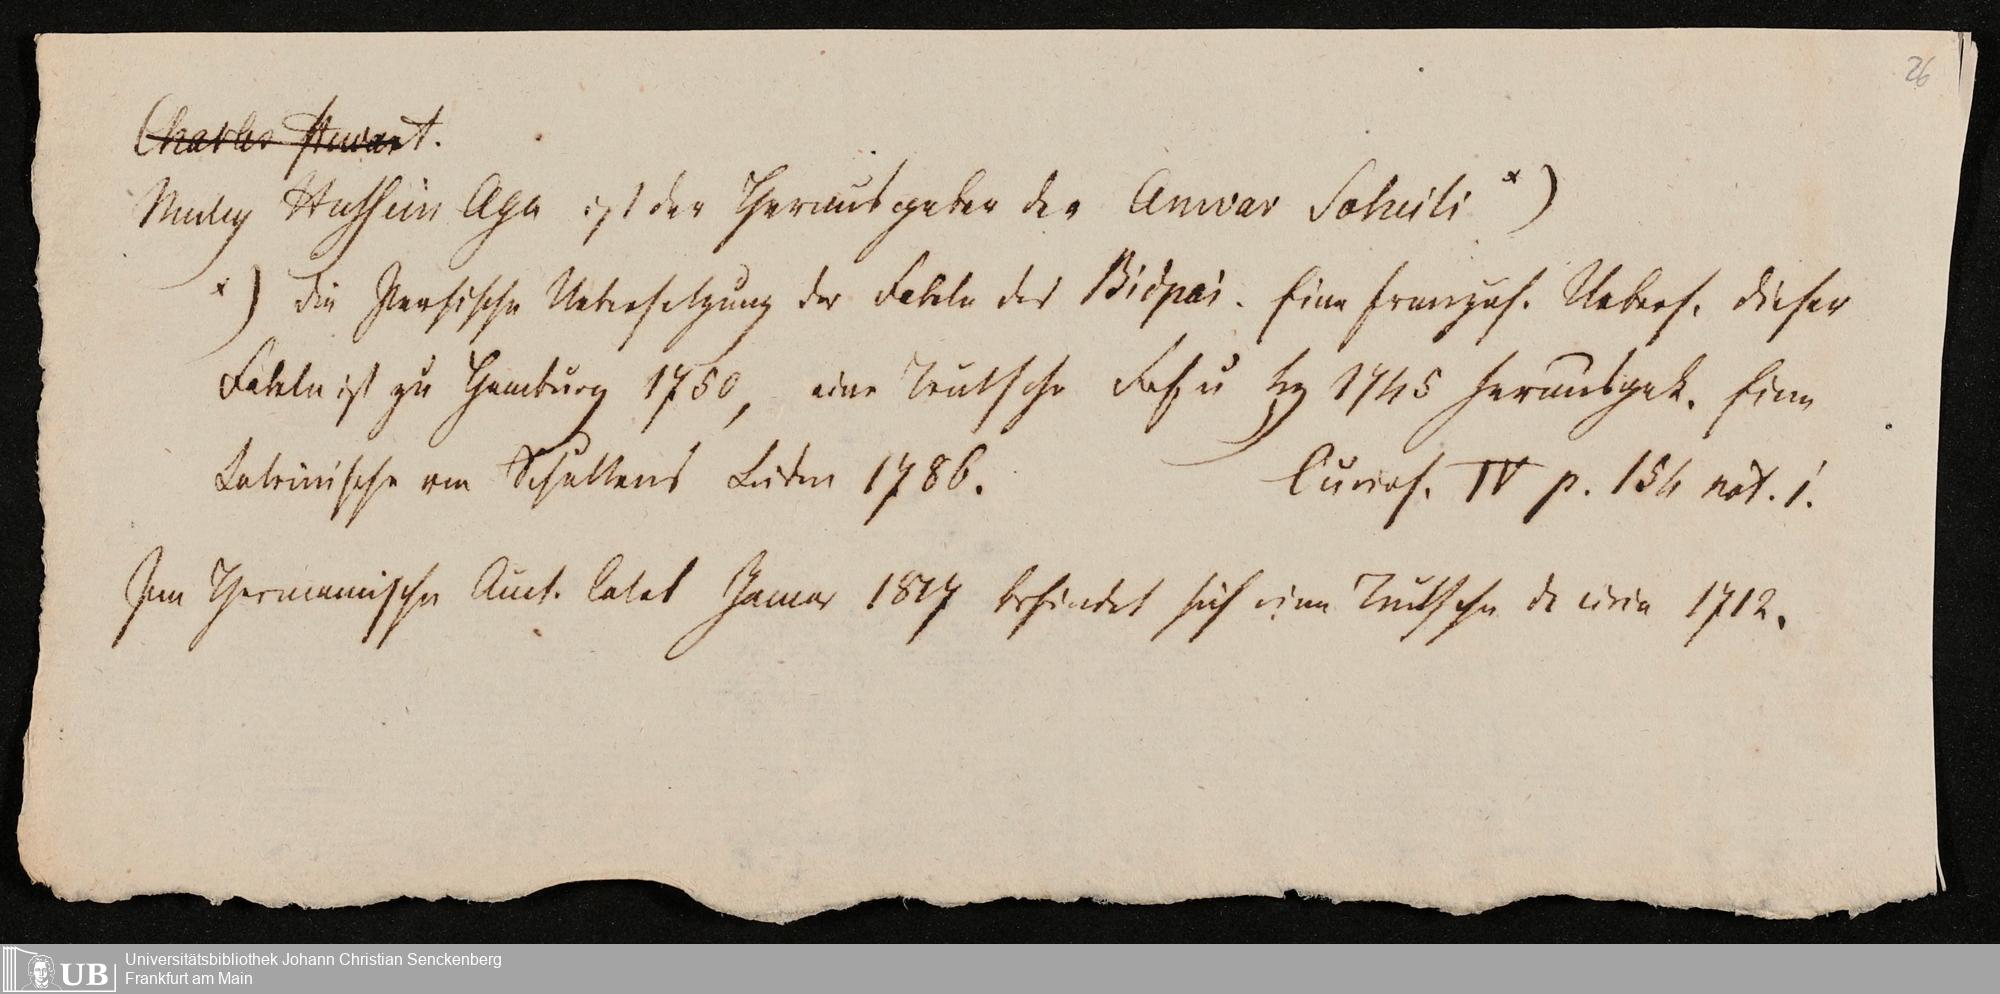 26
Charles Stewart.
Muley Hussein Aga ist der Herausgeber der Anwar Soheili *)
*) die Persische Uebersetzung der Fabeln des Bidpai. Eine franzos. Uebers. dieser
Fabeln ist zu Hamburg 1750, eine Teutsche Lpzg 1745 herausgek. Eine
Lateinische von Schultens Leiden 1786. IV p. 154 not. 1.
Im Hermannischen Auct. Catal 1817 befindet sich eine Teutsche de 1712.
Universitätsbibliothek Johann Christian Senckenberg
Frankfurt am Main
UB